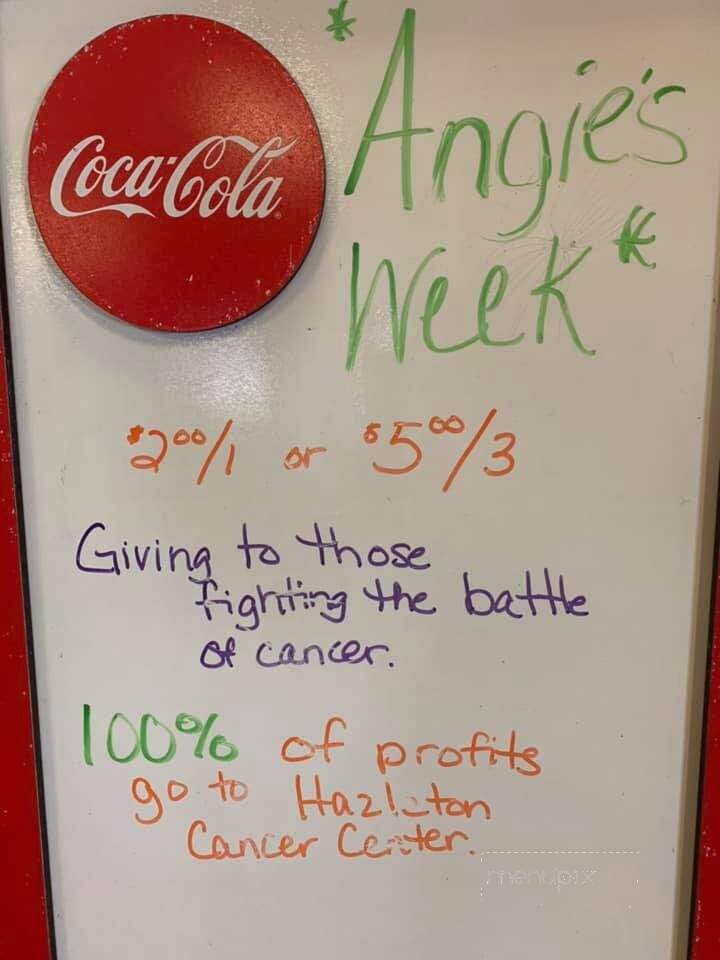 Coca-Cola
*Angie's
Week*
$2.00/1 or $5.00/3
Giving to those
fighting the battle
of cancer.
100% of profits
go to Hazleton
Cancer Center.
menupix